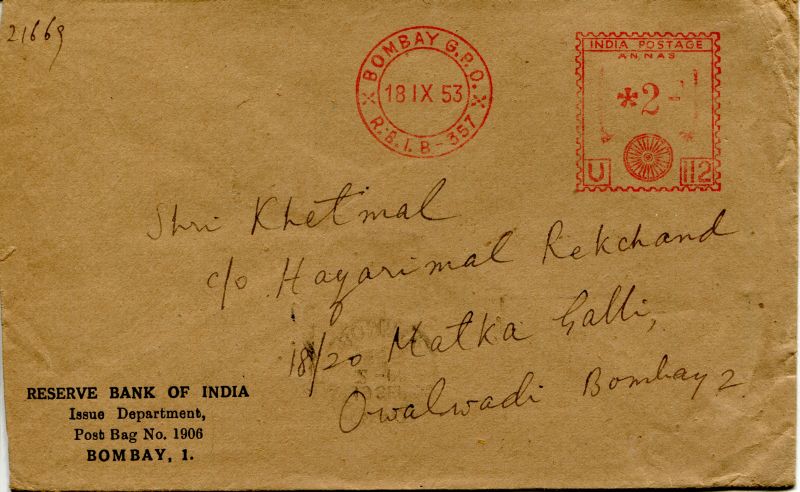 21669
BOMBAY G.P.O.
18 IX 53
R.B.I. B-357
INDIA POSTAGE
ANNAS
*2-
U 112
Shri Khetmal
c/o Hazarimal Rekchand
18/20 Matka Galli,
Owalwadi Bombay 2
RESERVE BANK OF INDIA
Issue Department,
Post Bag No. 1906
BOMBAY, 1.